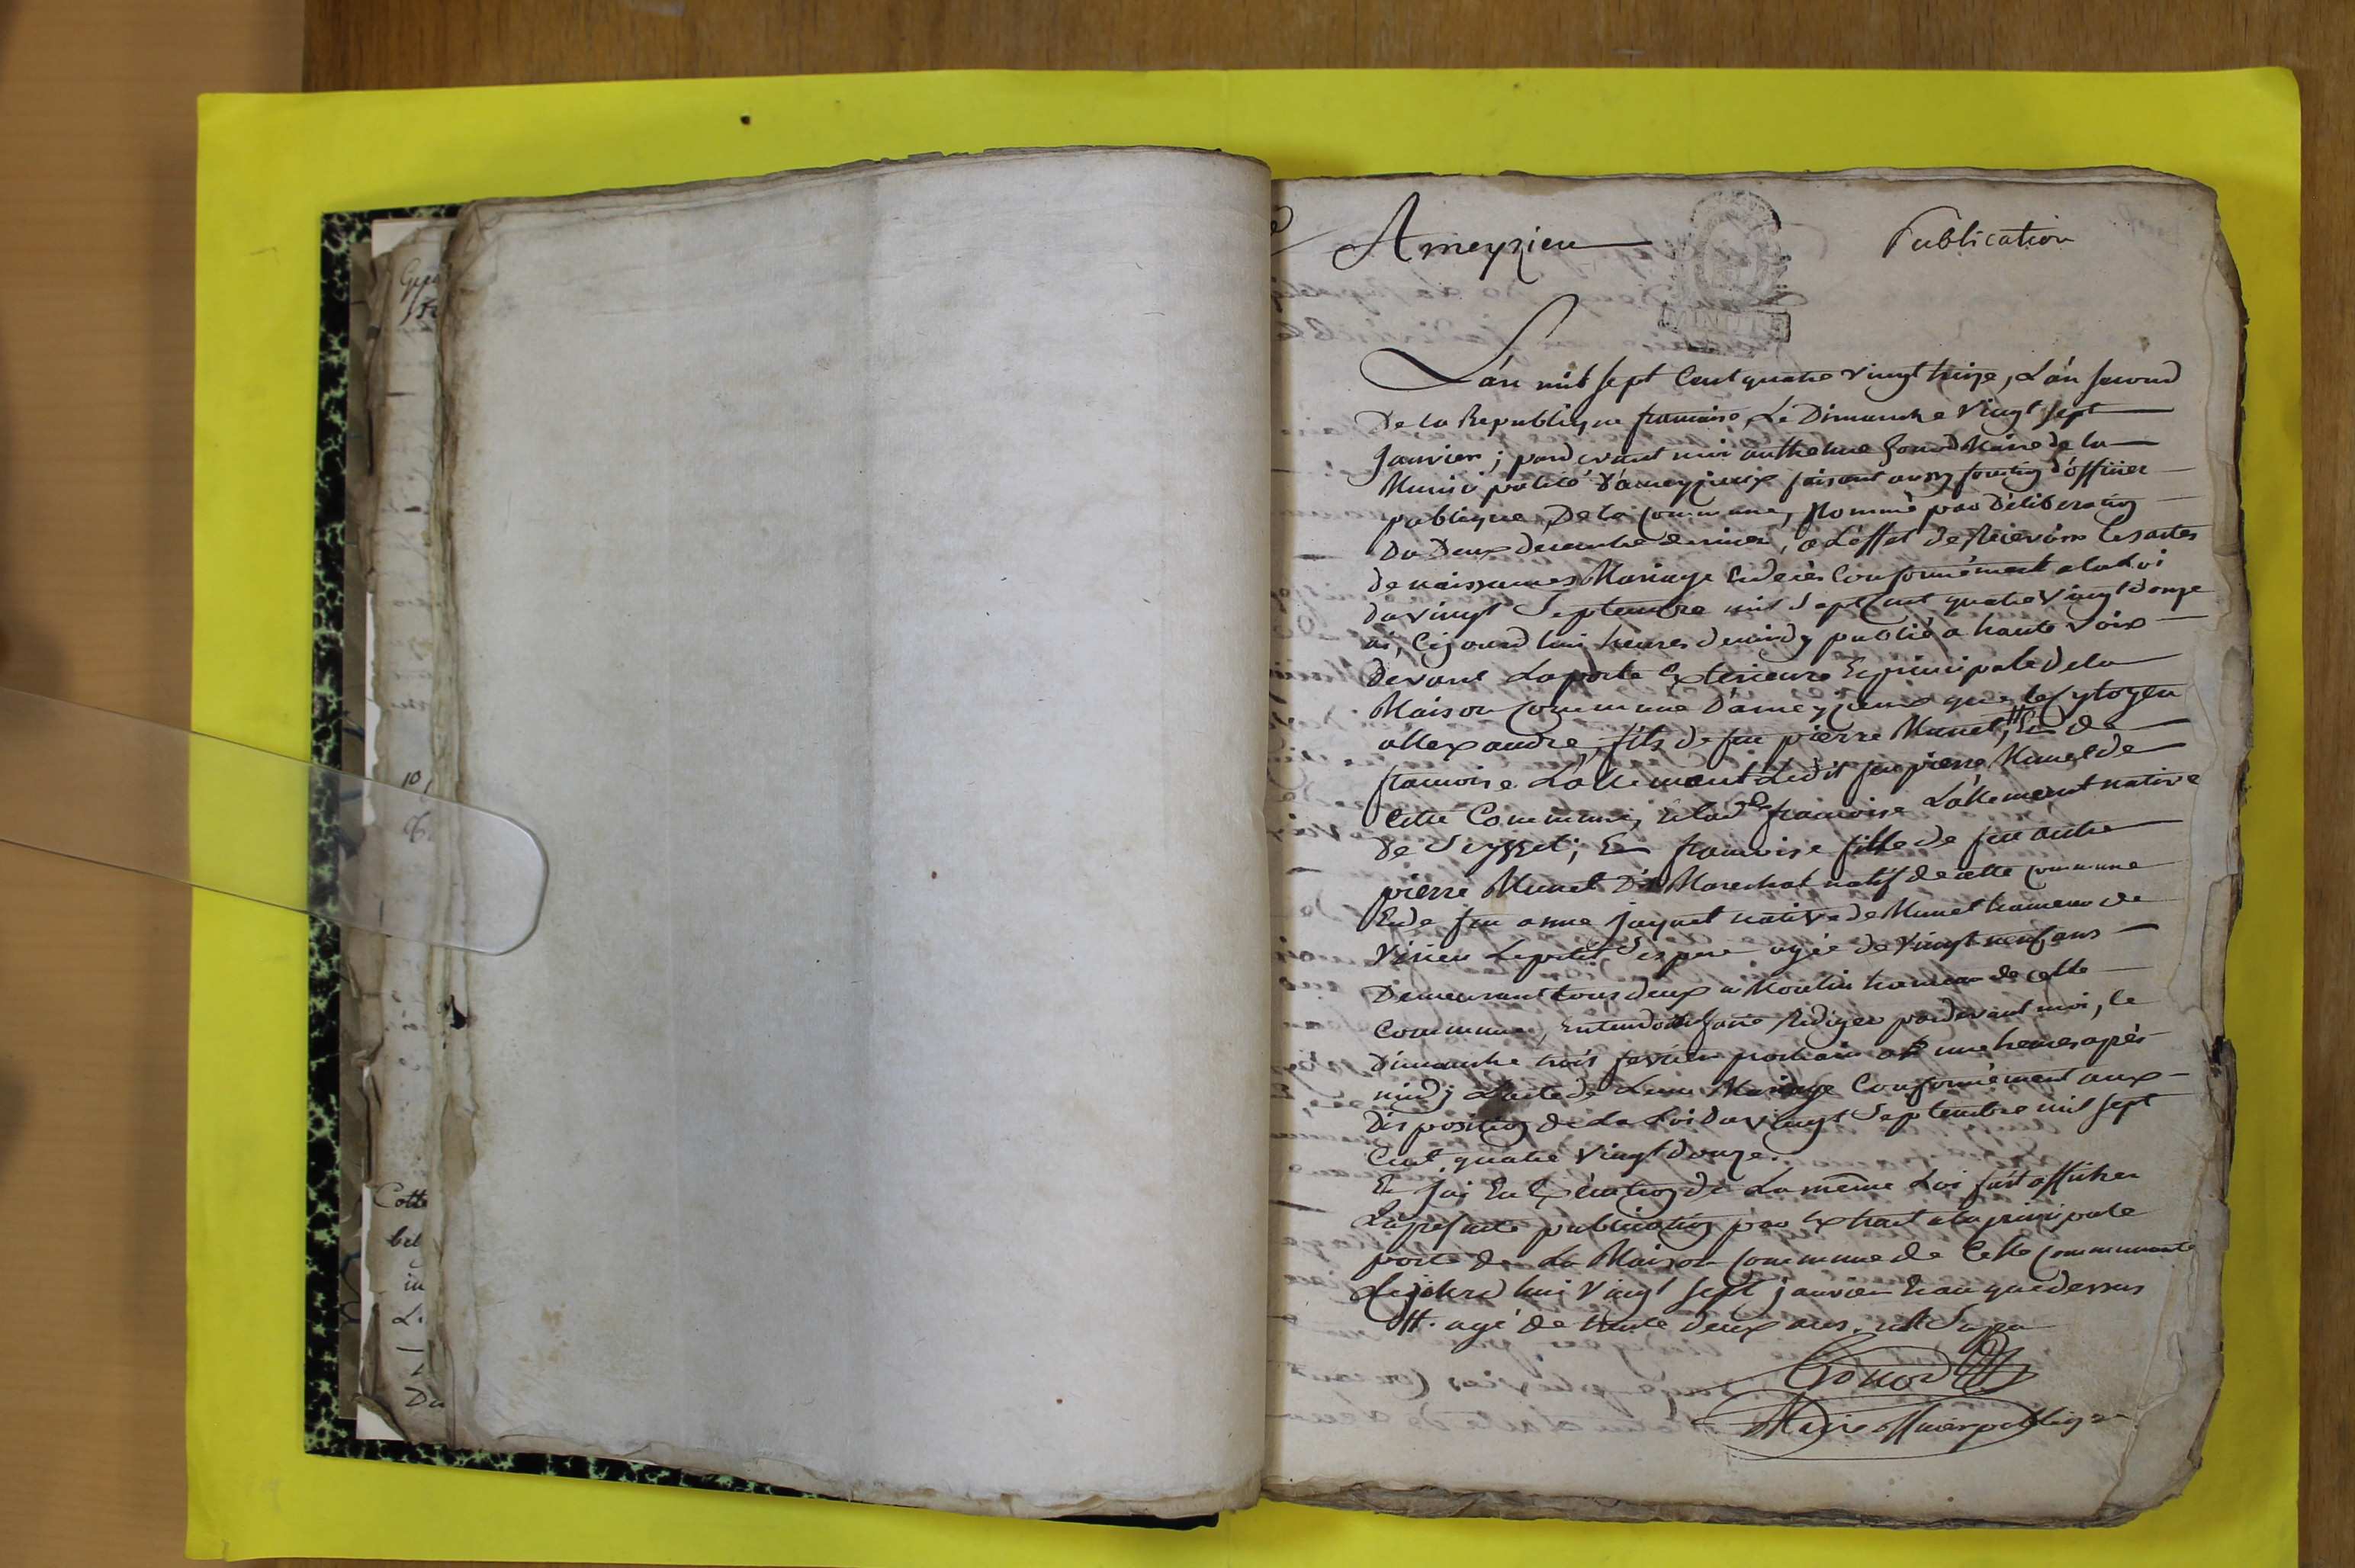 Ameyzieu
Publication
MINUTE
L'án mil sept Cent quatre vingt treize, L'án second
De la Republique francaise, Le Dimanche vingt sept
Janvier; pardevant moi anthelme Gonod Maire de la
Municipalité d'ameyzieux faisant aussy fonction d'officier
publique De la Commune, Nommé par Délibération
Du Deux decembre dernier, a L'éffet de Recevoir les actes
de naissances Mariage Et decès Conformément a la Loi
du vingt Septembre mil Sept Cent quatre vingt douze
ai, Cejourdhui heures de midy publié a haute voix
Devant La porte Exterieure Et principale de la
Maison Commune D'ameyzieux que le Cytoyen
allexandre, fils de feu pierre Munet, # Et de
francoise Lallement Ledit feu pierre Munet de
Cette Commune, Et lad.e francoise Lallement native
de Seyssel; Et francoise fille de feu autre
pierre Munet Dit Marechal natif de cette Commune
Et de feu anne Jaquet native de Munet hameau de
Virieu Le petit Des pere agée de vingt neuf ans
Demeurant tous deux a Moulin hameau de cette
Commune, Entendoit faire Rediger pardevant moi, le
Dimanche trois fevrier prochain a une heures après
midj L'acte de Leur Mariage Conformément aux
Disposition de La Loi du vingt Septembre mil sept
Cent quatre vingt douze.
Et jai En Execution de La même Loi fait afficher
La presente publication par Extrait a la principale
porte de La Maison Commune de Cette Communauté
Cejourd'hui vingt sept janvier Et an que dessus
#. agé de trente deux ans.
Gonod
Maire officier publique
10
Cott
bel
in
L.
Du